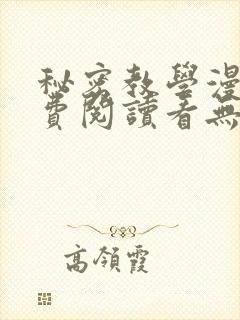 秘密教學漫
費閱讀看無
高領霞